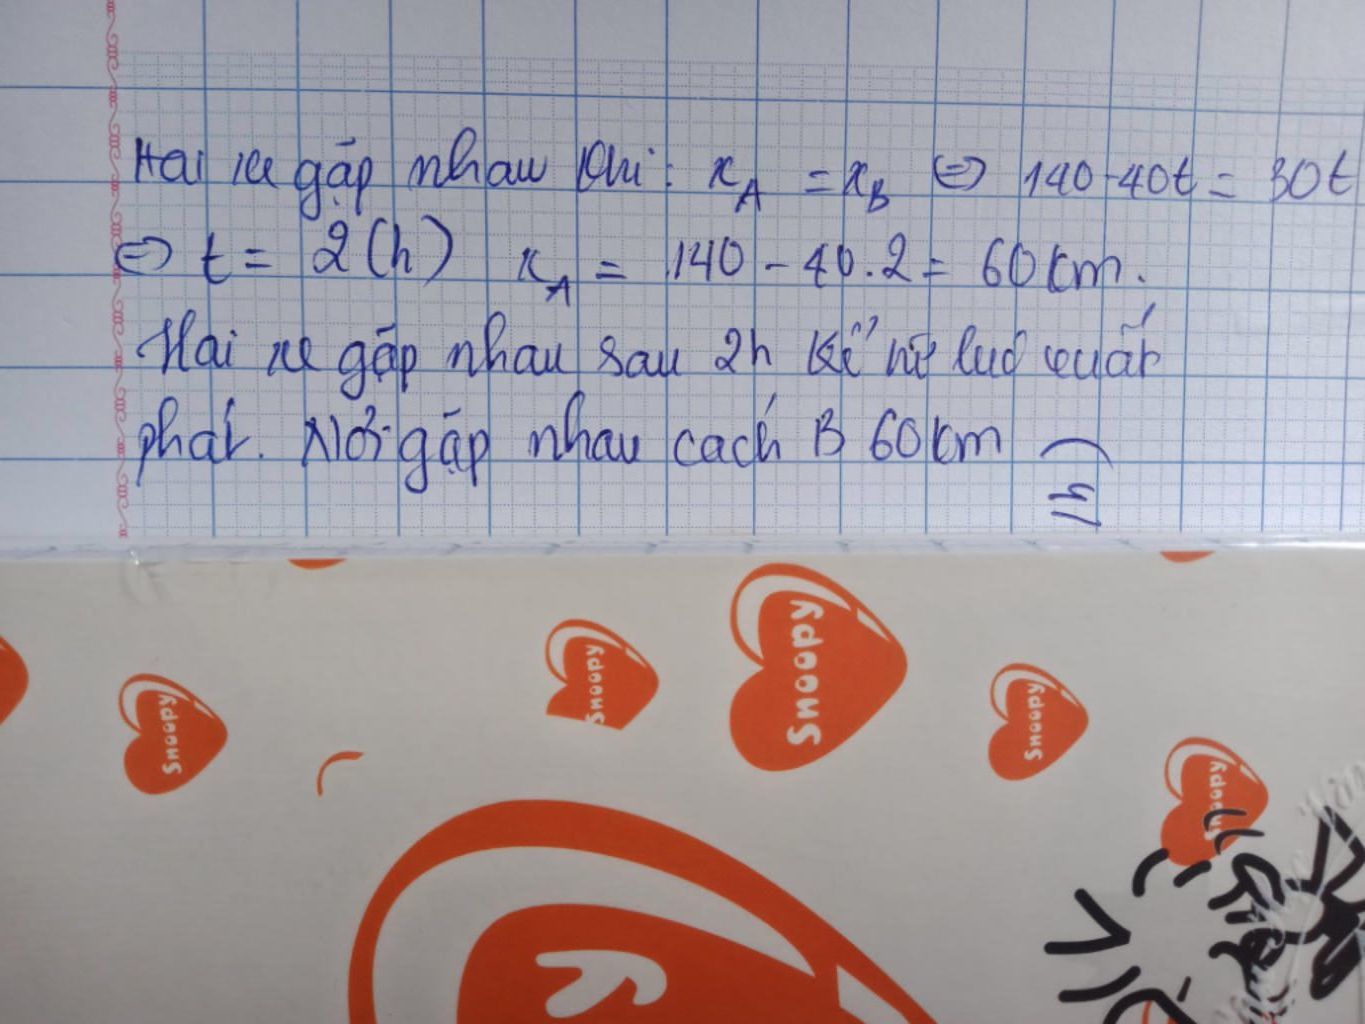 Hai xe gặp nhau khi: x_A = x_B ⇔ 140 - 40t = 30t
⇔ t = 2(h) x_A = 140 - 40.2 = 60 km.
Hai xe gặp nhau sau 2h kể từ lúc xuất
phát. Nơi gặp nhau cách B 60 km
Snoopy
Snoopy
Snoopy
Snoopy
Snoopy